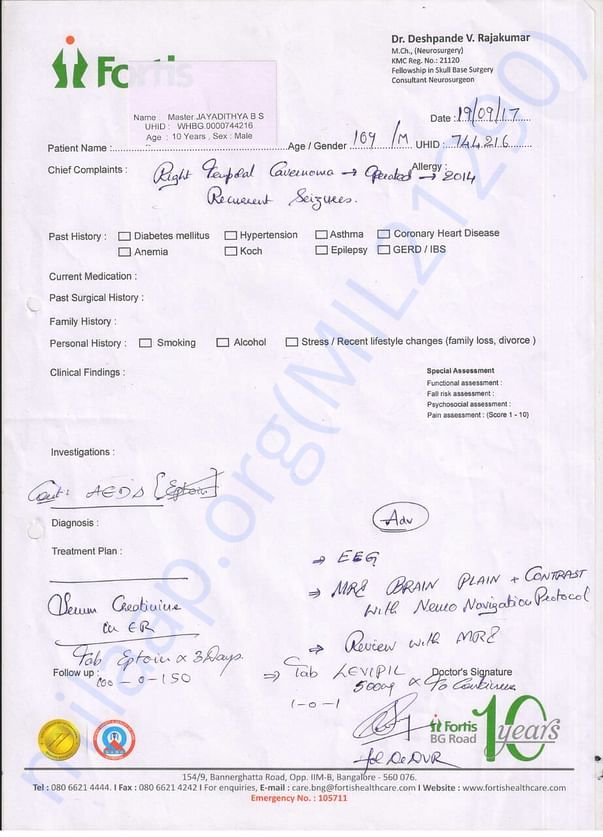 Fortis
Dr. Deshpande V. Rajakumar
M.Ch., (Neurosurgery)
KMC Reg. No.: 21120
Fellowship in Skull Base Surgery
Consultant Neurosurgeon
Name : Master.JAYADITHYA B S
UHID : WHBG.0000744216
Age : 10 Years , Sex : Male
Date : 19/09/17
Patient Name : Age / Gender 10y /M UHID : 744216
Chief Complaints : Allergy :
Right Temporal Cavernoma → Operated → 2014
Recurrent Seizures.
Past History : Diabetes mellitus Hypertension Asthma Coronary Heart Disease
Anemia Koch Epilepsy GERD / IBS
Current Medication :
Past Surgical History :
Family History :
Personal History : Smoking Alcohol Stress / Recent lifestyle changes (family loss, divorce )
Clinical Findings :
Special Assessment
Functional assessment :
Fall risk assessment :
Psychosocial assessment :
Pain assessment : (Score 1 - 10)
Investigations :
Cont: AEDs [Eptoin]
Diagnosis :
Adv
Treatment Plan :
⇒ EEG
⇒ MRI BRAIN PLAIN + CONTRAST
with Neuro Navigation Protocol
Serum Creatinine
in ER
⇒ Review with MRI
Tab Eptoin x 3 Days.
Follow up : 100 - 0 - 150
⇒ Tab LEVIPIL Doctor's Signature
500mg x To Continue
1-0-1
Fortis
BG Road
10 years
154/9, Bannerghatta Road, Opp. IIM-B, Bangalore - 560 076.
Tel : 080 6621 4444. I Fax : 080 6621 4242 I For enquiries, E-mail : care.bng@fortishealthcare.com I Website : www.fortishealthcare.com
Emergency No. : 105711
milaap.org(MIL21290)